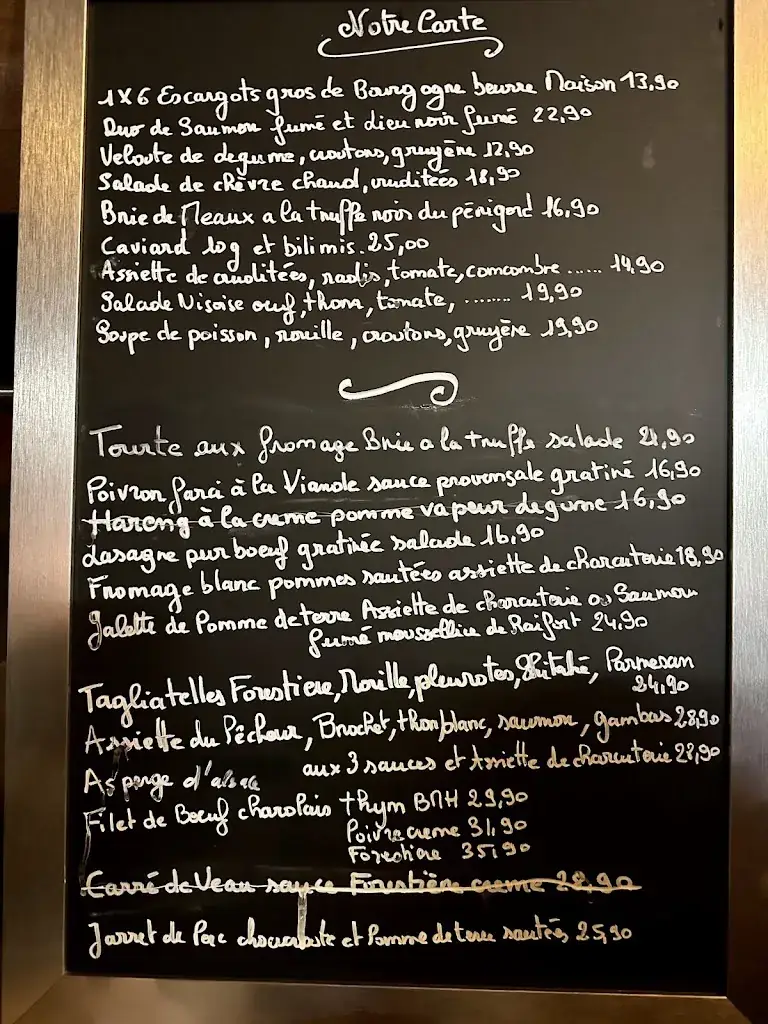 Notre Carte
1x6 Escargots gros de Bourgogne beurre Maison 13,90
Duo de Saumon fumé et dieu noir fumé 22,90
Veloute de degume, croutons, gruyène 12,90
Salade de chèvre chaud, cruditées 18,90
Brie de Meaux a la truffe noir du périgord 16,90
Caviard 10g et bilimis. 25,00
Assiette de cruditées, radis, tomate, comcombre ...... 14,90
Salade Nisoise oeuf, thon, tomate, ....... 19,90
Soupe de poisson, rouille, croutons, gruyère 19,90
Tourte aux fromage Brie a la truffe salade 21,90
Poivron farci à la Viande sauce provensale gratiné 16,90
Hareng à la creme pomme vapeur degume 16,90
Lasagne pur boeuf gratinée salade 16,90
Fromage blanc pommes sautées assiette de charcuterie 18,90
Galette de Pomme de terre Assiette de charcuterie ou Saumon
fumé mousselline de Raifort 24,90
Tagliatelles Forestiere, Morille, pleurotes, Shitaké, Parmesan
24,90
Assiette du Pêcheur, Brochet, thon blanc, saumon, gambas 28,90
Asperge d'alsace aux 3 sauces et Assiette de charcuterie 28,90
Filet de Boeuf charolais thym BMH 29,90
Poivre creme 31,90
Forestiere 35,90
Carré de Veau sauce Forestière creme 28,90
Jarret de Porc choucroute et Pomme de terre sautées 25,90